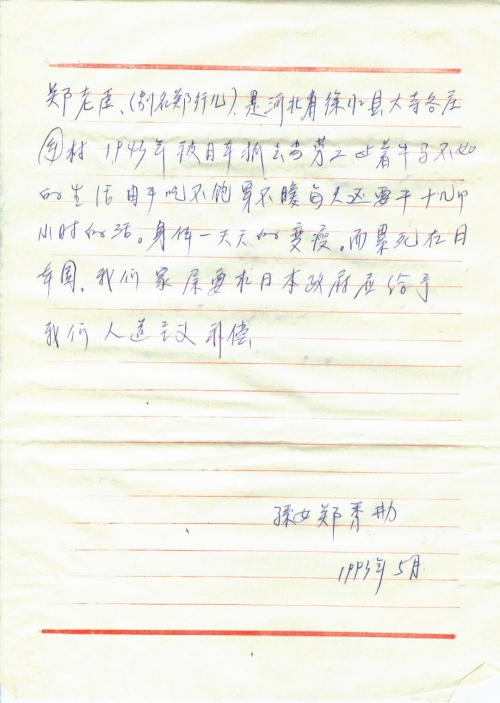 郑老臣、(别名郑行儿)、是河北省徐水县大寺各庄
园村 1943年被日本抓去当劳工 过着牛马不如
的生活 由于吃不饱 穿不暖 每天还要干十几个
小时的活。身体一天天的变瘦。而累死在日
本国。我们家属要求日本政府应给予
我们人道主义补偿
孙女郑秀
1993年5月